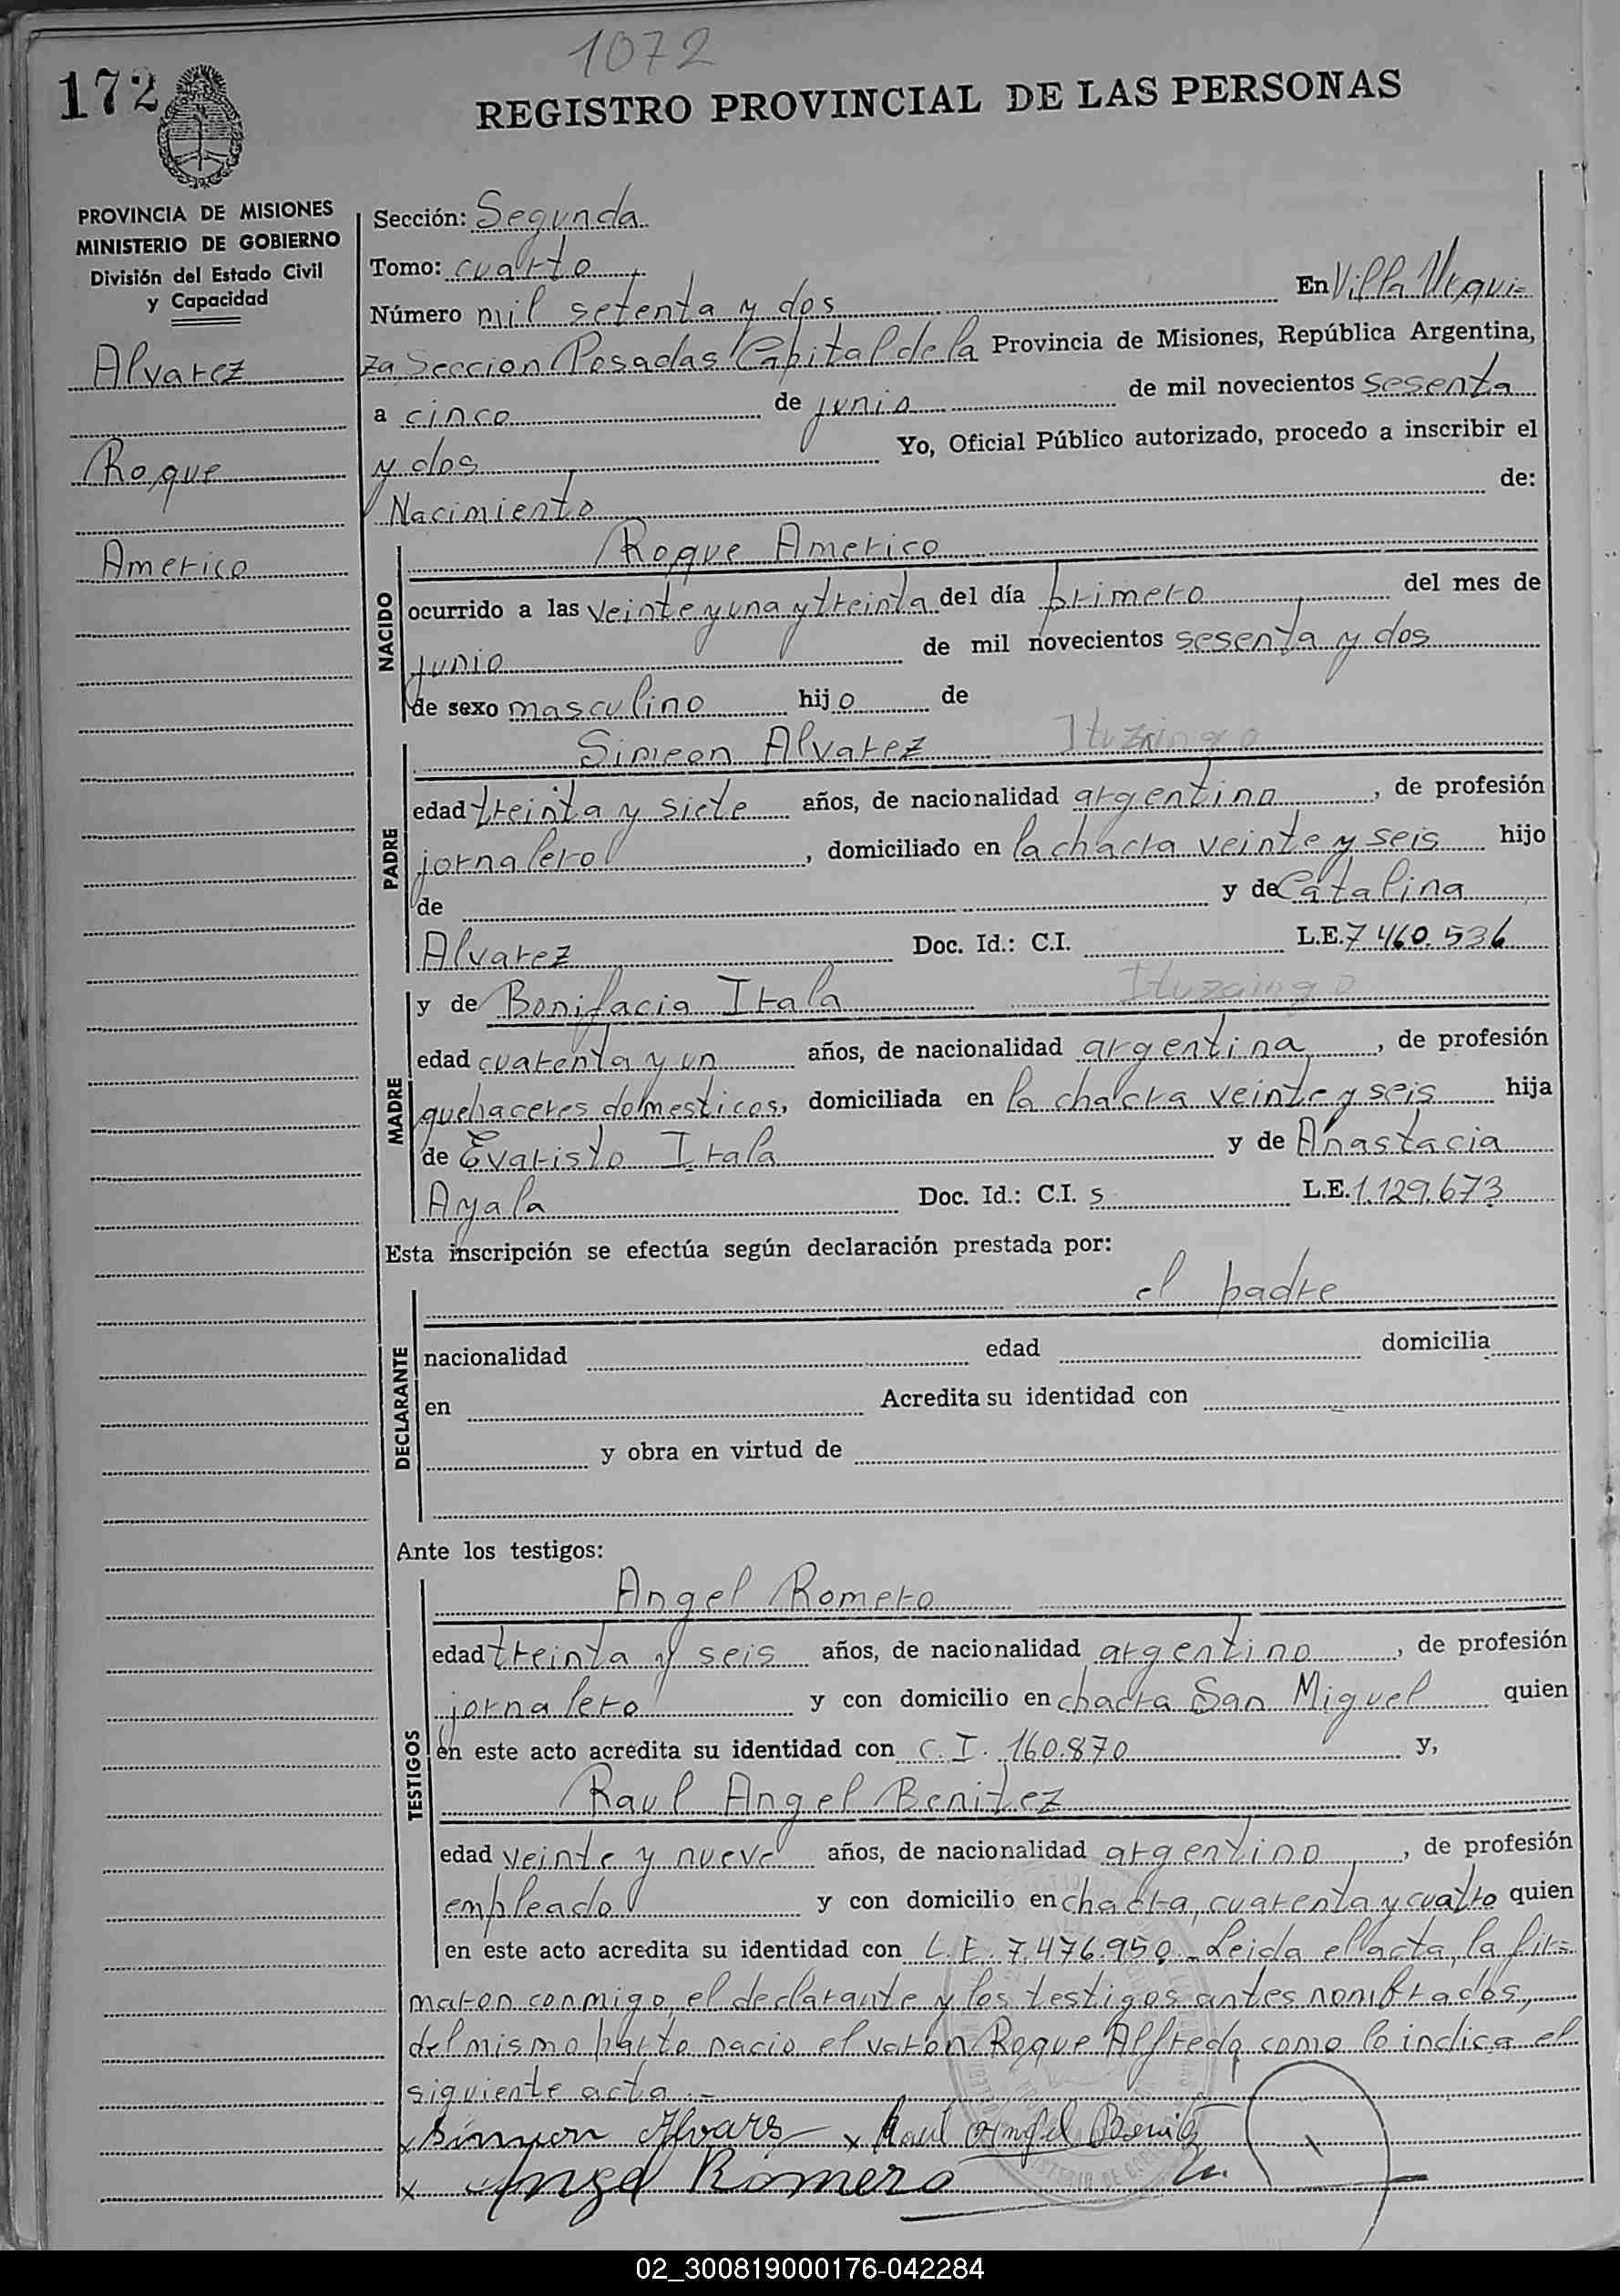 1072
172
REGISTRO PROVINCIAL DE LAS PERSONAS
PROVINCIA DE MISIONES
MINISTERIO DE GOBIERNO
División del Estado Civil
y Capacidad
Alvarez
Roque
Americo
Sección: Segunda
Tomo: cuarto
Número mil setenta y dos En Villa Urqui=
za Seccion Posadas Capital de la Provincia de Misiones, República Argentina,
a cinco de junio de mil novecientos sesenta
y dos Yo, Oficial Público autorizado, procedo a inscribir el
Nacimiento de:
NACIDO
Roque Americo
ocurrido a las veinte y una y treinta del día primero del mes de
junio de mil novecientos sesenta y dos
de sexo masculino hijo de
PADRE
Simeon Alvarez Ituzaingo
edad treinta y siete años, de nacionalidad argentino, de profesión
jornalero, domiciliado en la chacra veinte y seis hijo
de y de Catalina
Alvarez Doc. Id.: C.I. L.E. 7.460.536
MADRE
y de Bonifacia Irala Ituzaingo
edad cuarenta y un años, de nacionalidad argentina, de profesión
quehaceres domesticos, domiciliada en la chacra veinte y seis hija
de Evaristo Irala y de Anastacia
Ayala Doc. Id.: C.I. s L.E. 1.129.673
Esta inscripción se efectúa según declaración prestada por:
DECLARANTE
el padre
nacionalidad edad domicilia
en Acredita su identidad con
y obra en virtud de
Ante los testigos:
TESTIGOS
Angel Romero
edad treinta y seis años, de nacionalidad argentino, de profesión
jornalero y con domicilio en chacra San Miguel quien
en este acto acredita su identidad con C.I. 160.870 y,
Raul Angel Benitez
edad veinte y nueve años, de nacionalidad argentino, de profesión
empleado y con domicilio en chacra, cuarenta y cuatro quien
en este acto acredita su identidad con L.E. 7.476.950.- Leida el acta, la fir=
maron conmigo, el declarante y los testigos antes nombrados,
del mismo parto nacio el varon Roque Alfredo como lo indica el
siguiente acta.-
x Simeon Alvares x Raul Angel Benitez
x Angel Romero
02_300819000176-042284